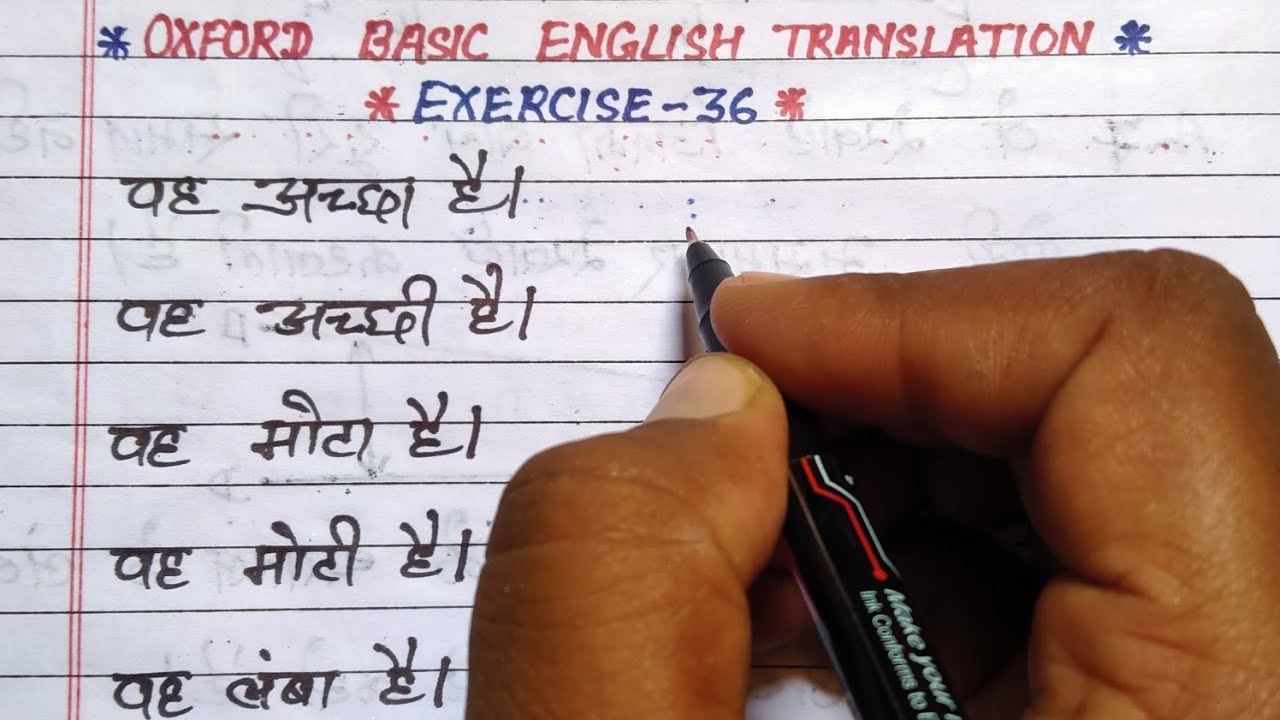 * OXFORD BASIC ENGLISH TRANSLATION *
* EXERCISE-36 *
वह अच्छा है।
वह अच्छी है।
वह मोटा है।
वह मोटी है।
वह लंबा है।
Make your
Ink Conforms to